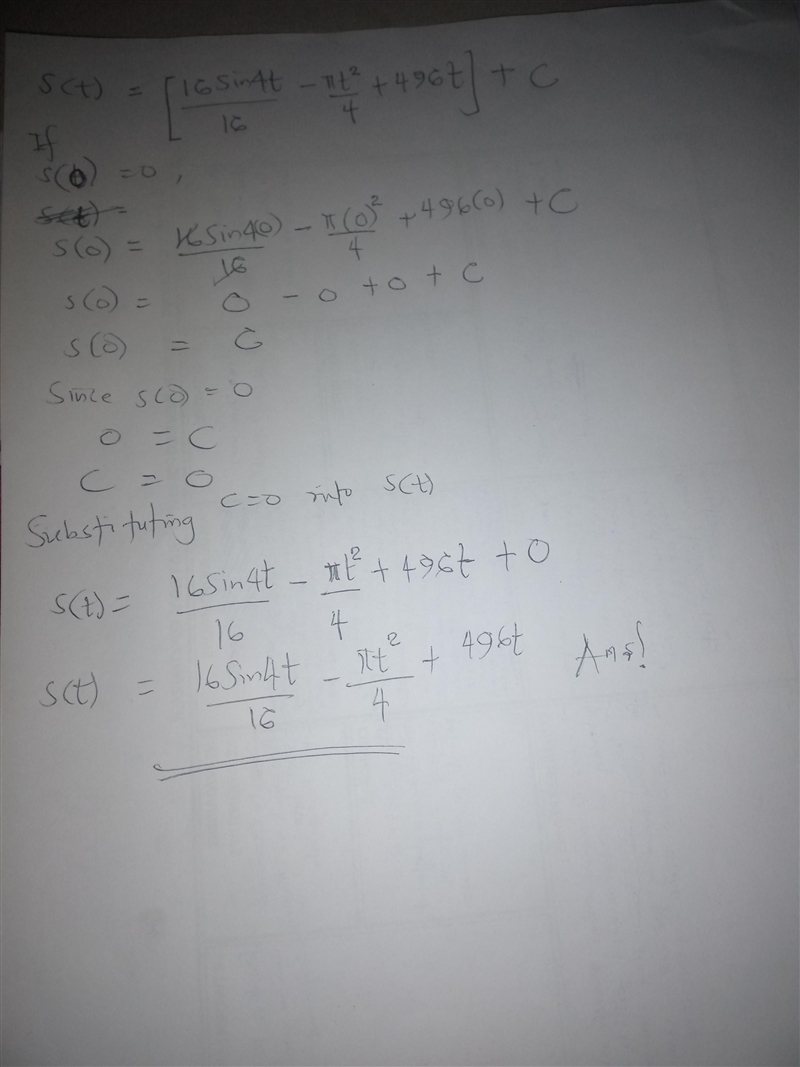 S(t) = [16Sin4t/16 − πt²/4 + 496t] + C
If
S(0) = 0,
S(t) =
S(0) = 16Sin4(0)/16 − π(0)²/4 + 496(0) + C
S(0) = 0 − 0 + 0 + C
S(0) = C
Since S(0) = 0
0 = C
C = 0
Substituting C=0 into S(t)
S(t) = 16Sin4t/16 − πt²/4 + 496t + 0
S(t) = 16Sin4t/16 − πt²/4 + 496t Ans!